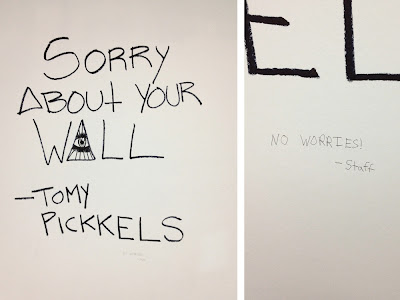 SORRY
ABOUT YOUR
WALL
-TOMY
PICKKELS
EL
NO WORRIES!
-Staff